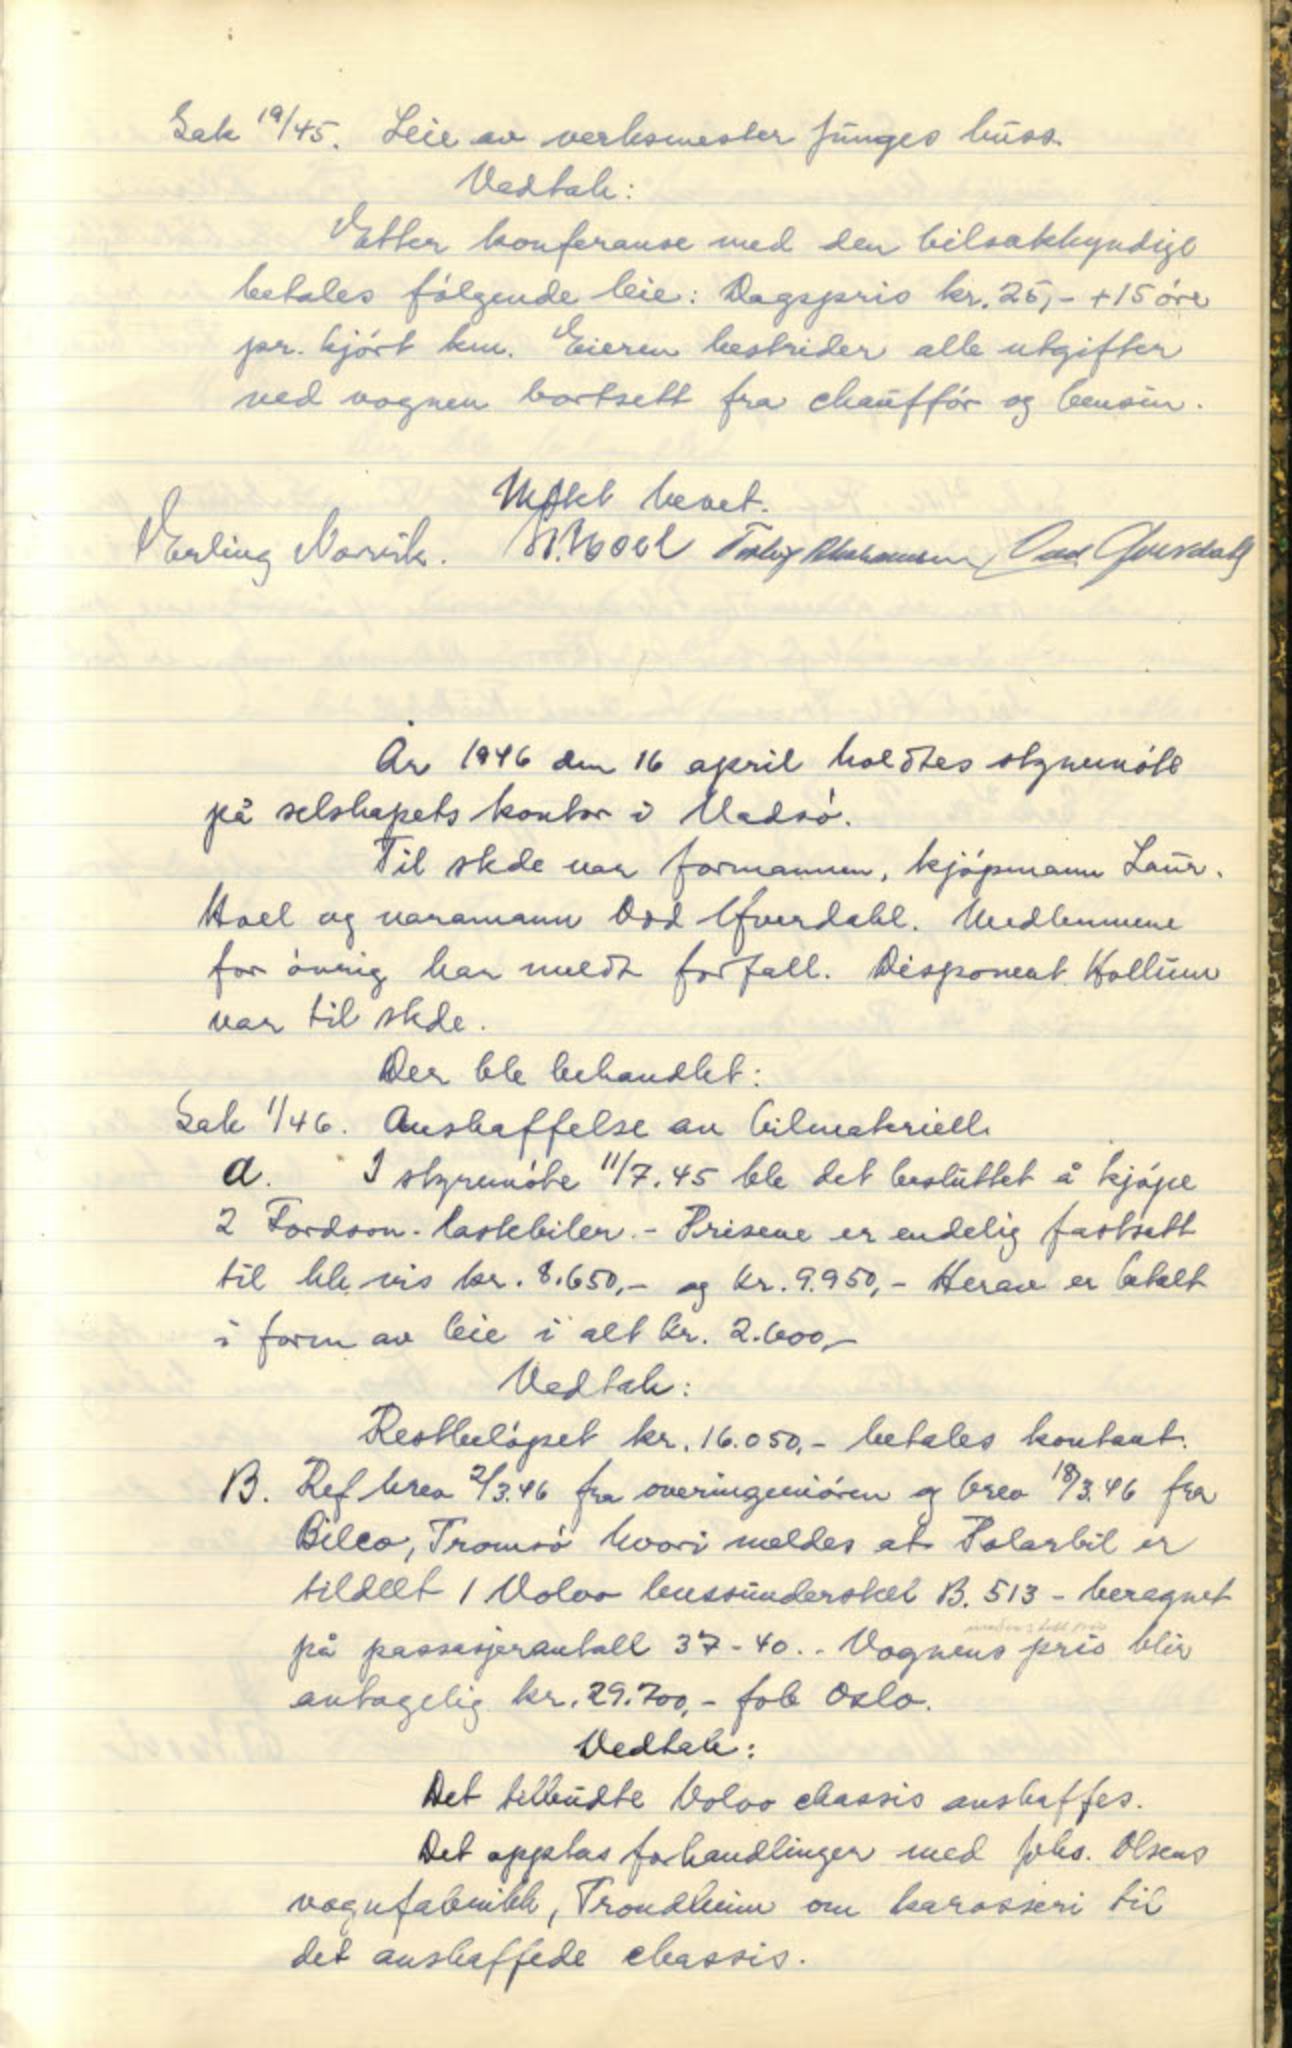 Sak 19/45. Leie av verksmester Junges buss.
Vedtak:
Etter konferanse med den bilsakkyndige
betales følgende leie: Dagspris kr. 25,- + 15 øre
pr. kjørt km. Eieren bestrider alle utgifter
ved vognen bortsett fra chauffør og bensin.
Møtet hevet.
Erling Norvik. L. Hoel Odd Qverdahl
År 1946 den 16 april holdtes styremøte
på selskapets kontor i Vadsø.
Til stede var formannen, kjøpmann Laur.
Hoel og varamann Odd Qverdahl. Medlemmene
for øvrig har meldt forfall. Disponent Hollum
var til stede.
Der ble behandlet:
Sak 1/46. Anskaffelse av bilmateriell.
a. I styremøte 11/7.45 ble det besluttet å kjøpe
2 Fordson-lastebiler. - Prisene er endelig fastsatt
til hh.vis kr. 8.650,- og kr. 9.950,- Herav er betalt
i form av leie i alt kr. 2.600,-
Vedtak:
Restbeløpet kr. 16.050,- betales kontant.
B. Ref brev 2/3.46 fra overingeniøren og brev 18/3.46 fra
Bilco, Tromsø hvori meldes at Polarbil er
tildelt 1 Volvo bussunderstell B. 513 - beregnet
på passasjerantall 37-40. - Vognens pris blir
antagelig kr. 29.700,- fob Oslo.
Vedtak:
Det tilbudte Volvo chassis anskaffes.
Det opptas forhandlinger med Johs. Olsens
vognfabrikk, Trondheim om karosseri til
det anskaffede chassis.